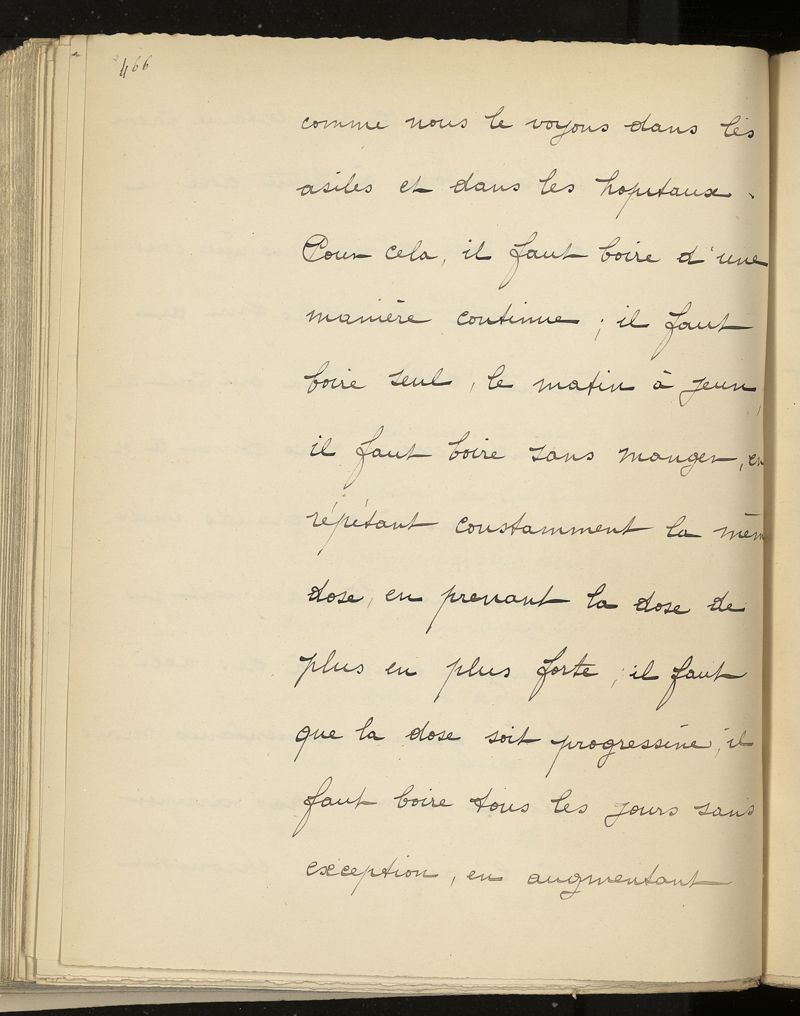 466
comme nous le voyons dans les
asiles et dans les hopitaux.
Pour cela, il faut boire d'une
manière continue ; il faut
boire seul, le matin à jeun,
il faut boire sans manger, en
répétant constamment la mêm
dose, en prenant la dose de
plus en plus forte ; il faut
que la dose soit progressive, il
faut boire tous les jours sans
exception, en augmentant